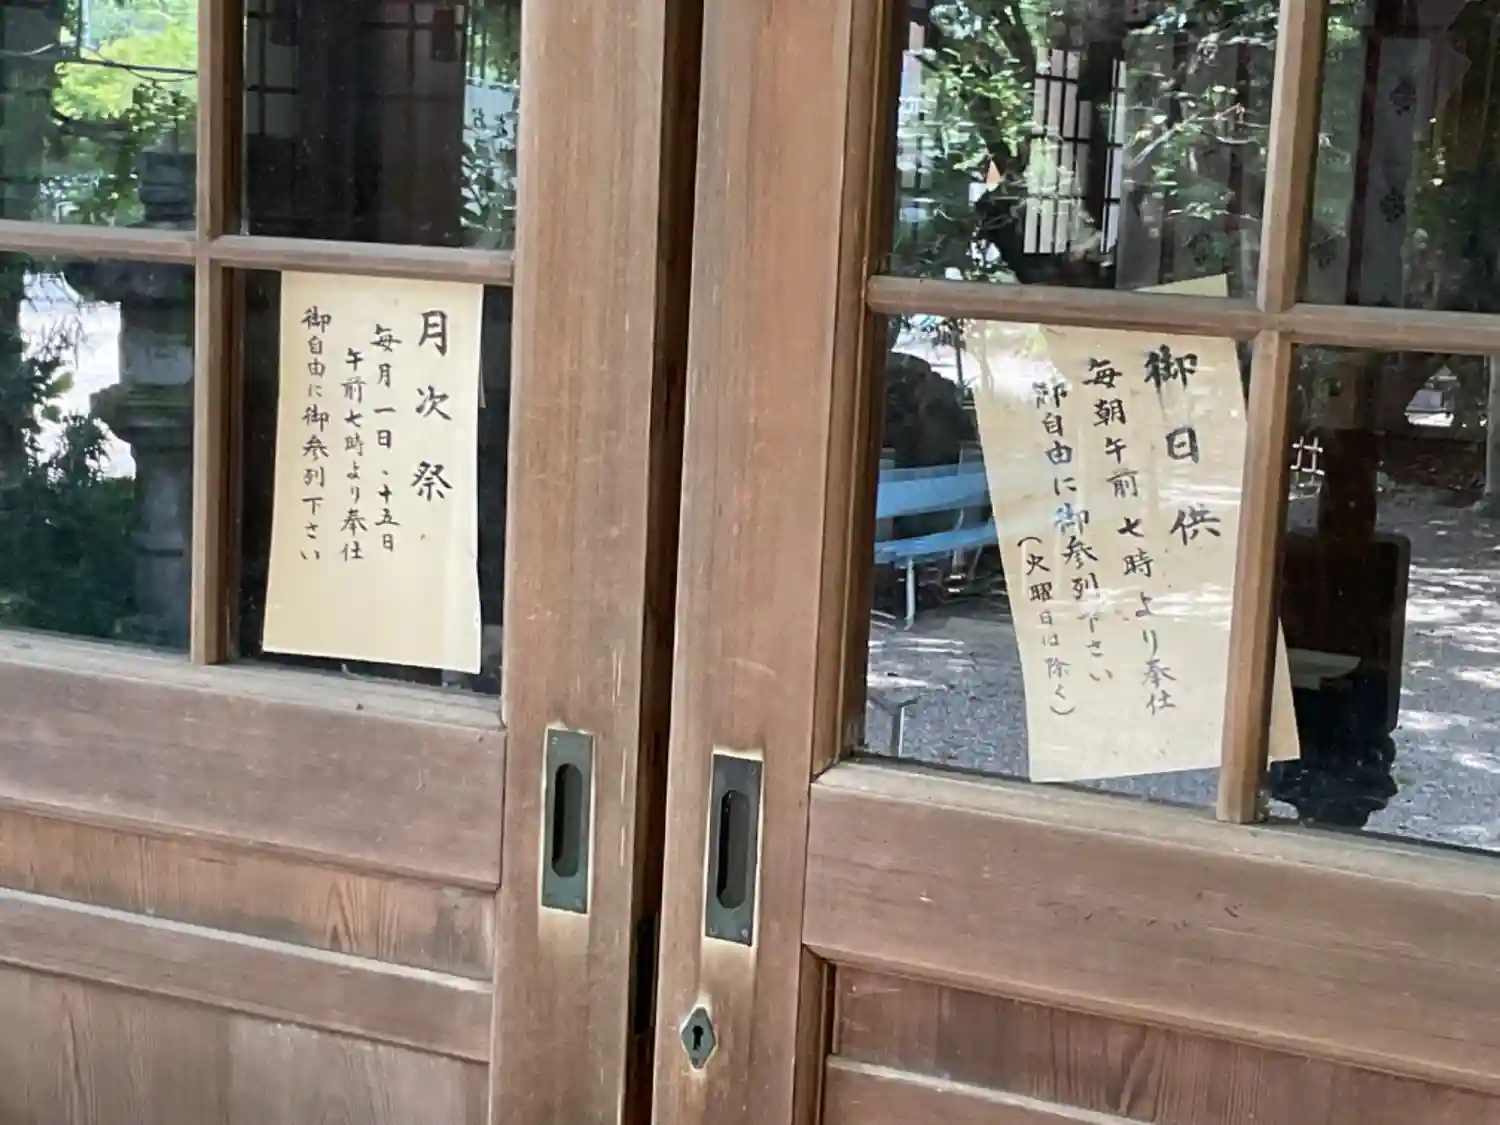 月次祭
毎月一日、十五日
午前七時より奉仕
御自由に御参列下さい
御日供
毎朝午前七時より奉仕
御自由に御参列下さい
(火曜日は除く)